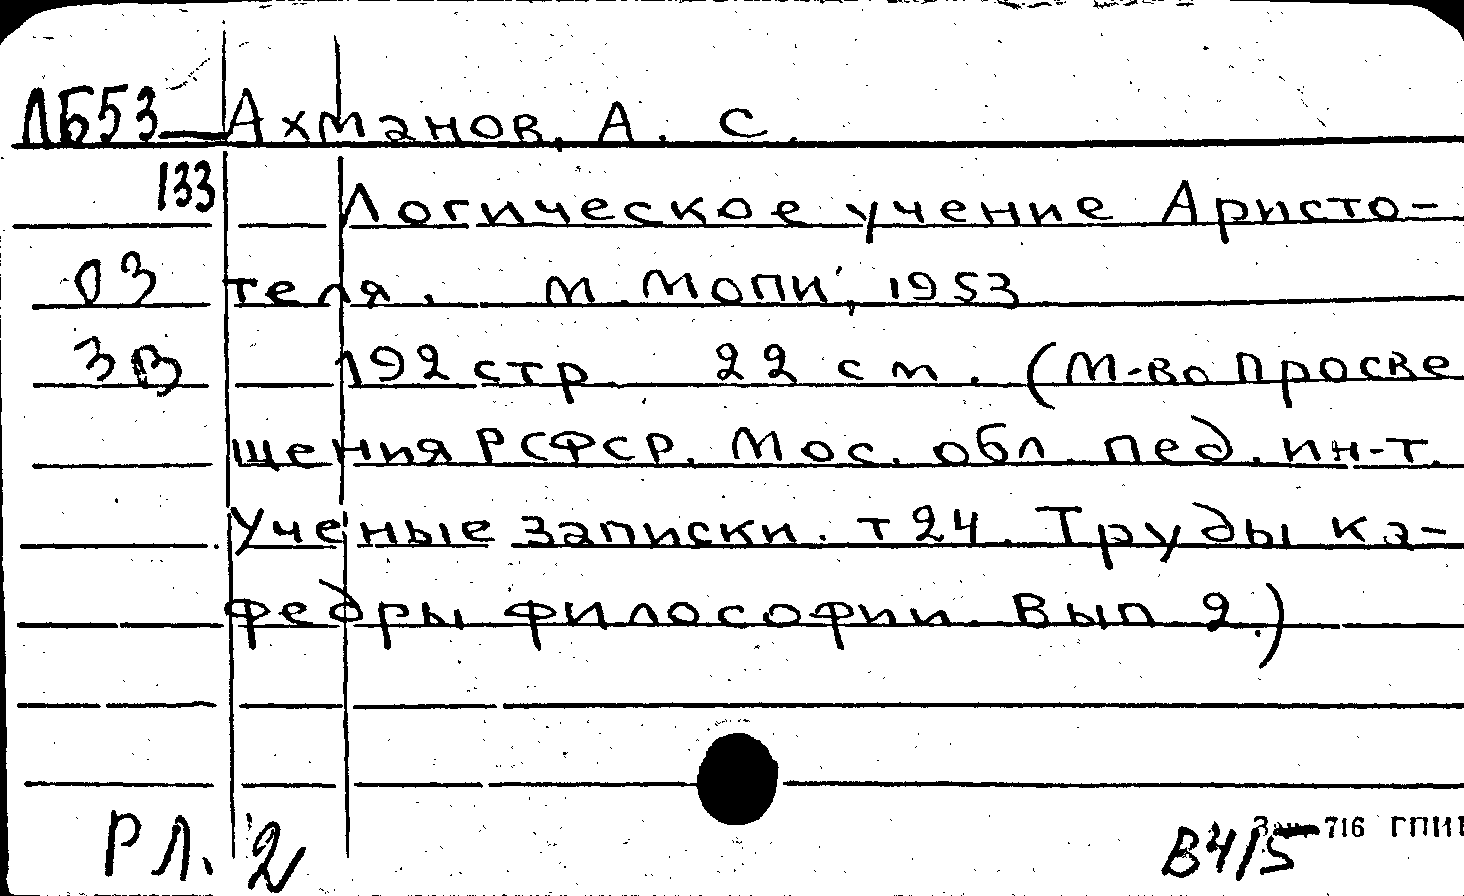 ЛБ53 Ахманов, А. С.
133 Логическое учение Аристо-
03 теля. М. МОПИ, 1953
192 стр. 22 см. (М-во Просве
щения РСФСР. Мос. обл. пед. ин-т.
Ученые записки. т 24. Труды ка-
федры философии. Вып 2.)
РЛ. 2
В4/5 716 ГПИБ